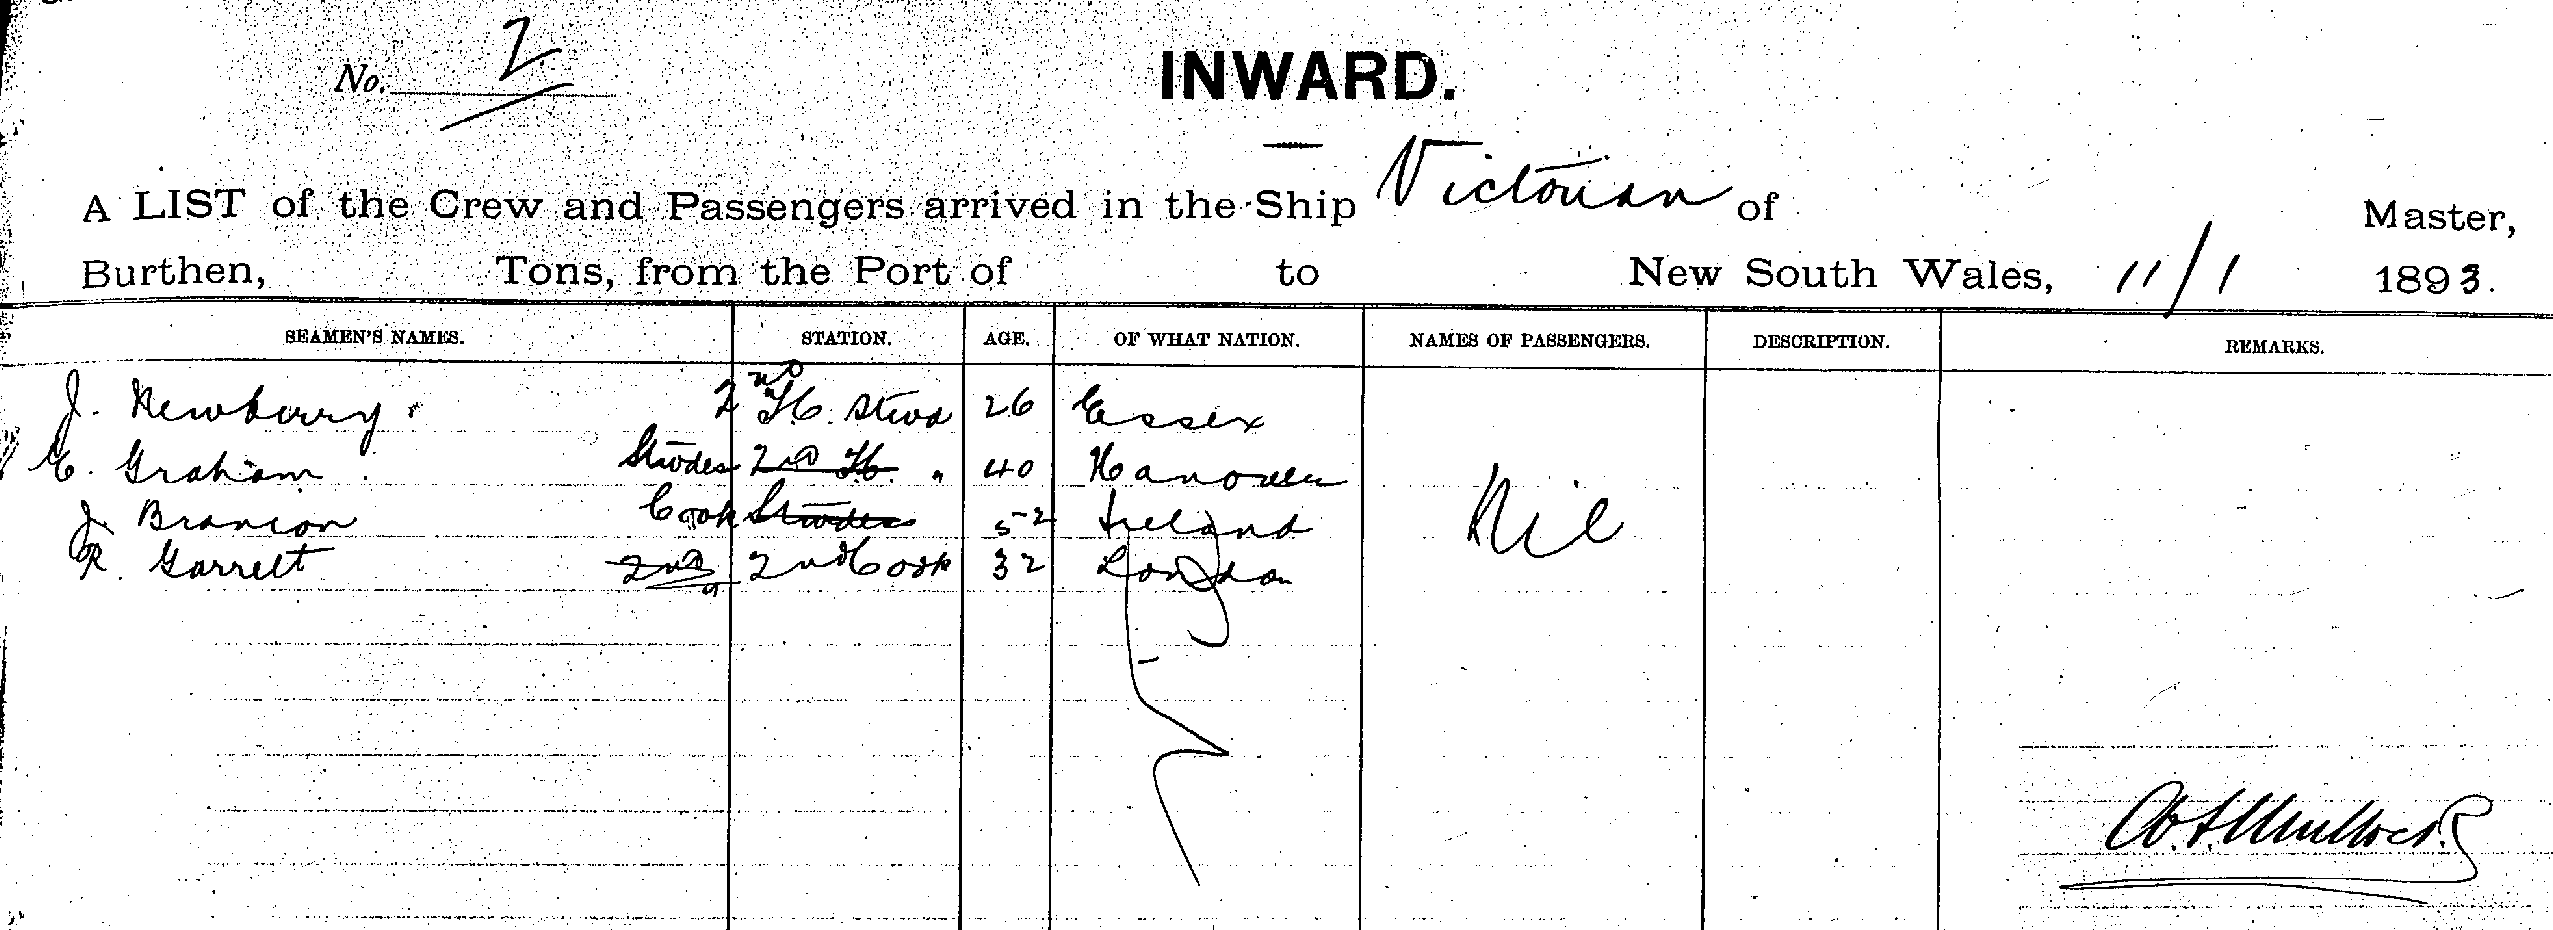 No. 2
INWARD.
A LIST of the Crew and Passengers arrived in the Ship Victorian of Master,
Burthen, Tons, from the Port of to New South Wales, 11/1 1893.
SEAMEN'S NAMES. STATION. AGE. OF WHAT NATION. NAMES OF PASSENGERS. DESCRIPTION. REMARKS.
J. Newberry 2nd Stwd 26 Essex
Graham Stwdes 2nd " 40 Hanover
J. Branion Cook Stwdes 52 Ireland Nil
R. Garrett 2nd 2nd Cook 32 London